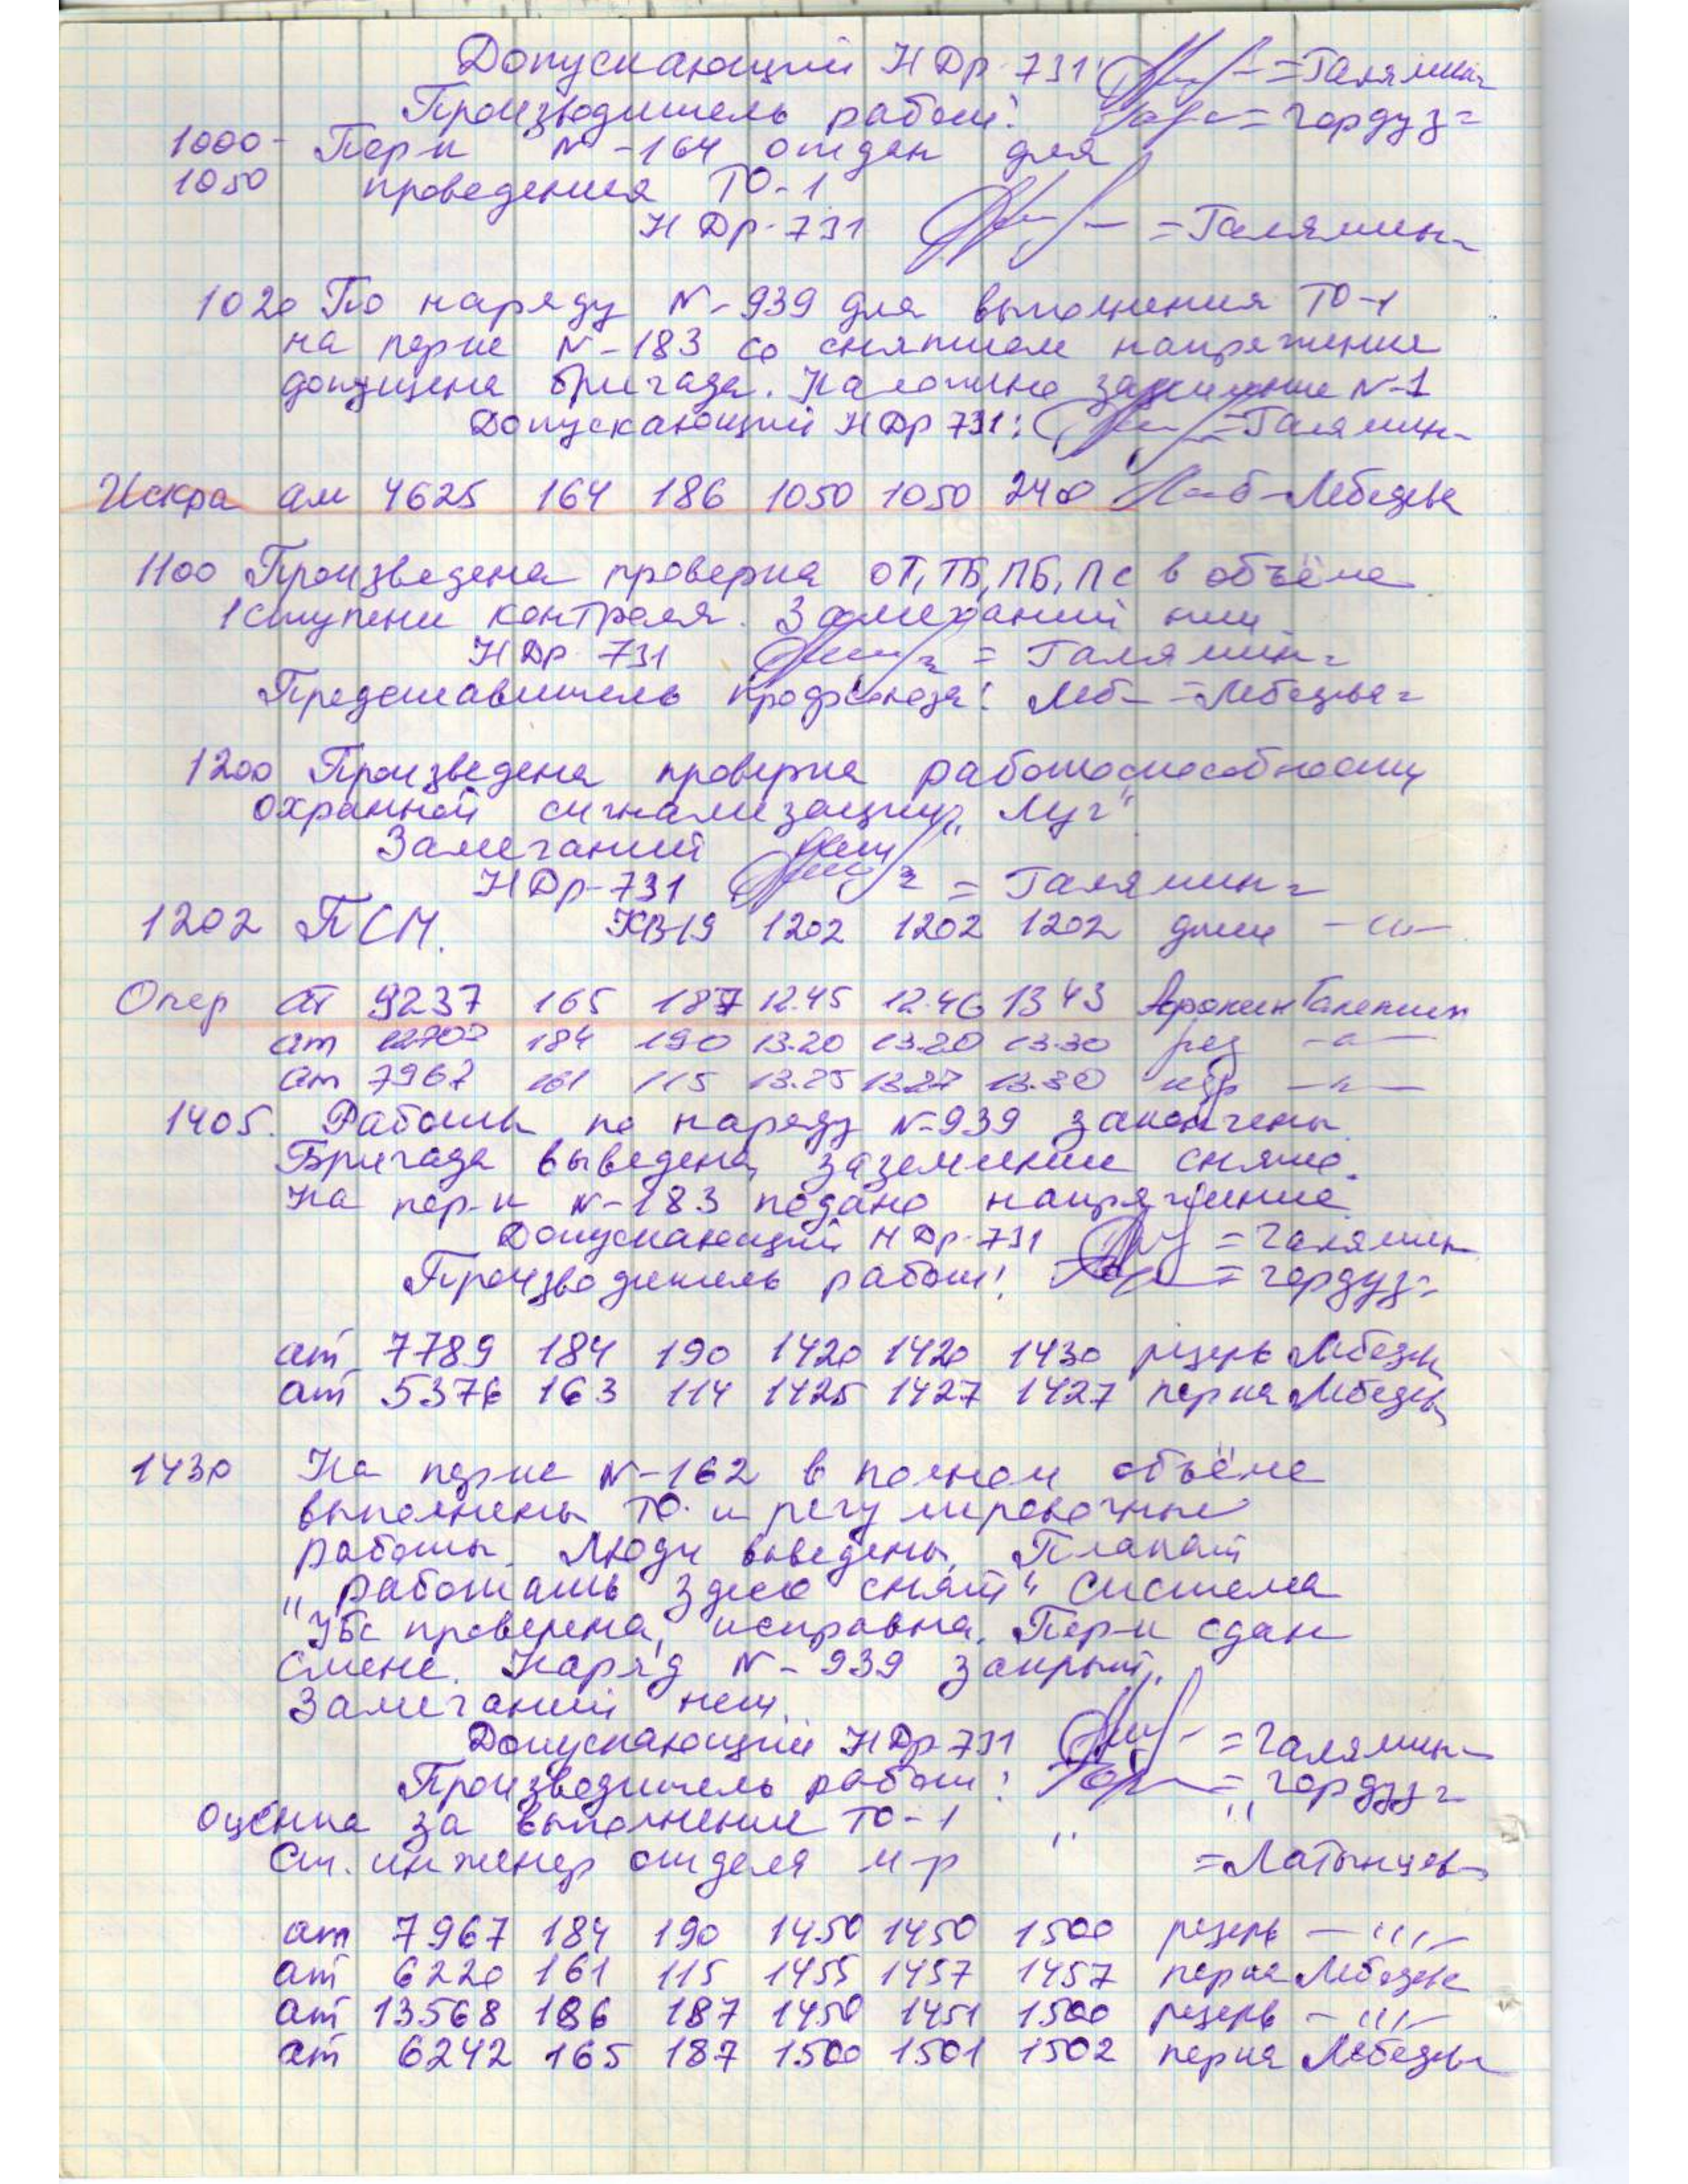 Допускающий НДр-731 =Галямин=
Производитель работ: =Гордуз=
1000- Пер-к N-164 отдан для
1050 проведения ТО-1
НДр-731 =Галямин=
1020 По наряду N-939 для выполнения ТО-1
на пер-ке N-183 со снятием напряжения
допущена бригада. Наложено заземление N-1
Допускающий НДр 731: =Галямин=
Искра ам 4625 164 186 1050 1050 240 Лебедева
1100 Произведена проверка ОТ, ТБ, ПБ, ПС в объёме
1 ступени контроля. Замечаний нет
НДр 731 = Галямин=
Представитель профсоюза: Леб- =Лебедева=
1200 Произведена проверка работоспособности
охранной сигнализации „Луг"
Замечаний нет
НДр-731 = Галямин=
1202 ПСМ. КВ19 1202 1202 1202 -"-
Опер ат 9237 165 187 12.45 12.46 1343 Галямин
ат 184 190 13.20 13.20 13.30 рез -"-
ат 7967 161 115 13.25 13.27 13.30 пер -"-
1405. Работы по наряду N-939 закончены.
Бригада выведена, заземление снято.
На пер-к N-183 подано напряжение.
Допускающий НДр-731 =Галямин
Производитель работ: =Гордуз=
ат 7789 184 190 1420 1420 1430 резерв Лебедева
ат 5376 163 114 1425 1427 1427 перка Лебедева
1430 На пер-ке N-162 в полном объёме
выполнены ТО и регулировочные
работы. Люди выведены, Плакат
„Работать здесь снят" Система
УБС проверена, исправна. Пер-к сдан
смене. Наряд N-939 закрыт.
Замечаний нет.
Допускающий НДр 731 =Галямин=
Производитель работ: =Гордуз=
Оценка за выполнение ТО-1 " "
Ст. инженер отдела м-р =Латынцев=
ат 7967 184 190 1450 1450 1500 резерв -"-
ат 6220 161 115 1455 1457 1457 перка Лебедева
ат 13568 186 187 1450 1451 1500 резерв -"-
ат 6242 165 187 1500 1501 1502 перка Лебедева